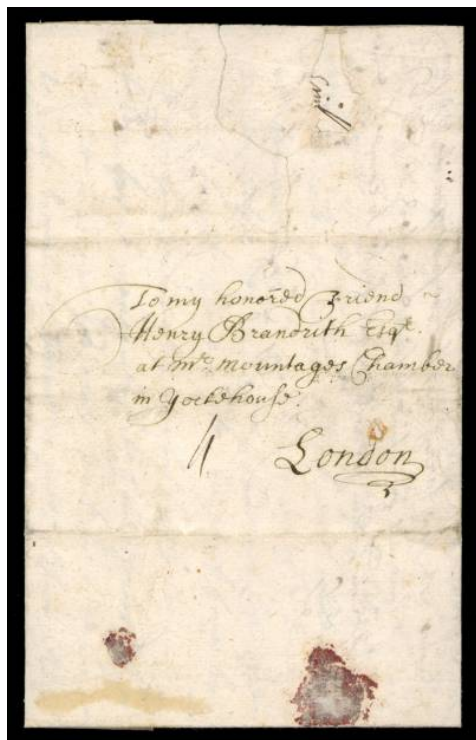 To my honored Friend
Henry Brandrith Esqr.
at Mr. Mountages Chamber
in Yorkehouse.
London